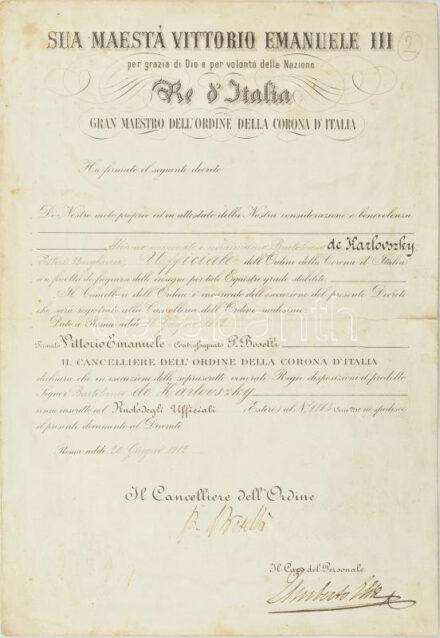 SUA MAESTÀ VITTORIO EMANUELE III
2
per grazia di Dio e per volontà della Nazione
Re d'Italia
GRAN MAESTRO DELL'ORDINE DELLA CORONA D'ITALIA
Ha firmato il seguente decreto
Di Nostro moto proprio ed in attestato della Nostra considerazione e benevolenza
Abbiamo nominato e nominiamo Bartolomeo de Karlovszky
Ufficiale dell'Ordine della Corona d'Italia
con facoltà di fregiarsi delle insegne per tale Equestre grado stabilite.
Il Cancelliere dell'Ordine è incaricato dell'esecuzione del presente Decreto
che sarà registrato alla Cancelleria dell'Ordine medesimo.
Dato a Roma addì
Firmato Vittorio Emanuele - Contrassegnato P. Boselli
IL CANCELLIERE DELL'ORDINE DELLA CORONA D'ITALIA
dichiara che in esecuzione delle soprascritte venerate Regie disposizioni il predetto
Signor Bartolomeo de Karlovszky
venne inscritto nel Ruolo degli Ufficiali (Esteri) al N.
il presente documento al Decorato
Roma addì 20 Giugno 1912
Il Cancelliere dell'Ordine
P. Boselli
Il Capo del Personale